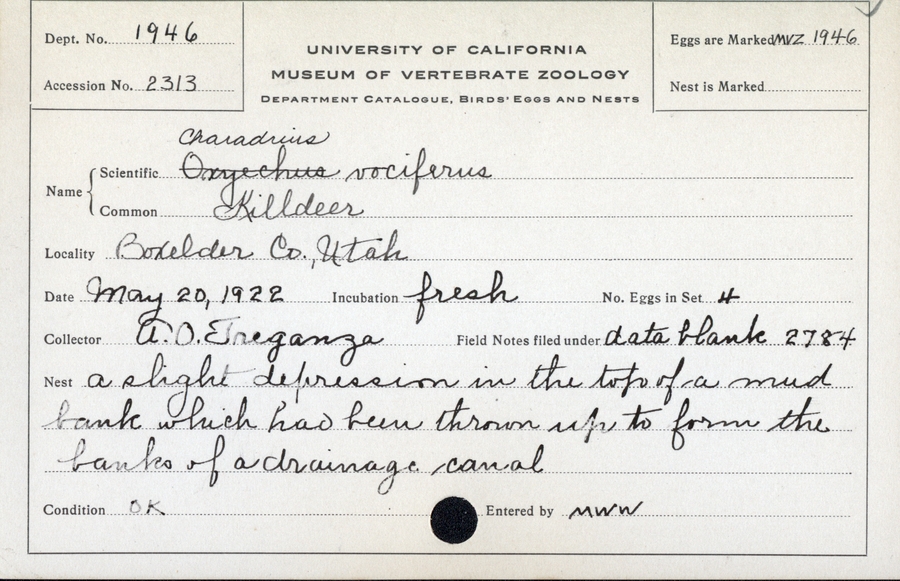 Dept. No. 1946
UNIVERSITY OF CALIFORNIA
MUSEUM OF VERTEBRATE ZOOLOGY
DEPARTMENT CATALOGUE, BIRDS' EGGS AND NESTS
Eggs are Marked MVZ 1946
Accession No. 2313
Nest is Marked
Charadrius
Name { Scientific Oxyechus vociferus
Common Killdeer
Locality Boxelder Co., Utah
Date May 20, 1922 Incubation fresh No. Eggs in Set 4
Collector A.O. Treganza Field Notes filed under data blank 2784
Nest a slight depression in the top of a mud
bank which had been thrown up to form the
banks of a drainage canal
Condition OK Entered by MWW